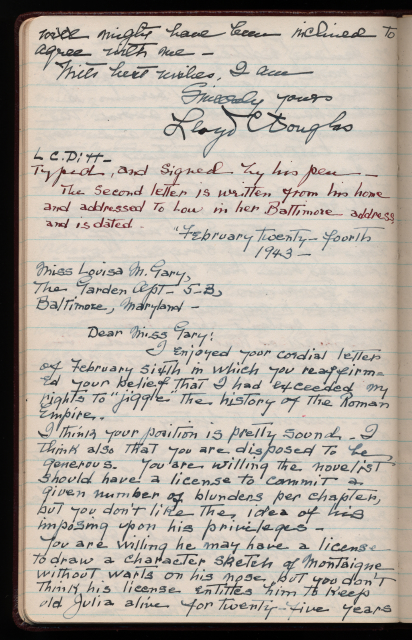 might have been inclined to
agree with me -
With best wishes, I am
Sincerely yours
Lloyd C Douglas
L C.D: H-
Typed, and signed by his pen -
The second letter is written from his home
and addressed to Lou in her Baltimore address
and is dated.
"February twenty-fourth
1943-
Miss Louisa M. Gary,
The Garden Apt - 5-B,
Baltimore, Maryland -
Dear Miss Gary:
I enjoyed your cordial letter
of February sixth in which you reaffirm-
ed your belief that I had exceeded my
rights to "jiggle" the history of the Roman
Empire.
I think your position is pretty sound. I
think also that you are disposed to be
generous. You are willing the novelist
should have a license to commit a
given number of blunders per chapter,
but you don't like the idea of his
imposing upon his privileges -
You are willing he may have a license
to draw a character sketch of Montaigne
without warts on his nose, but you don't
think his license entitles him to keep
old Julia alive for twenty-five years